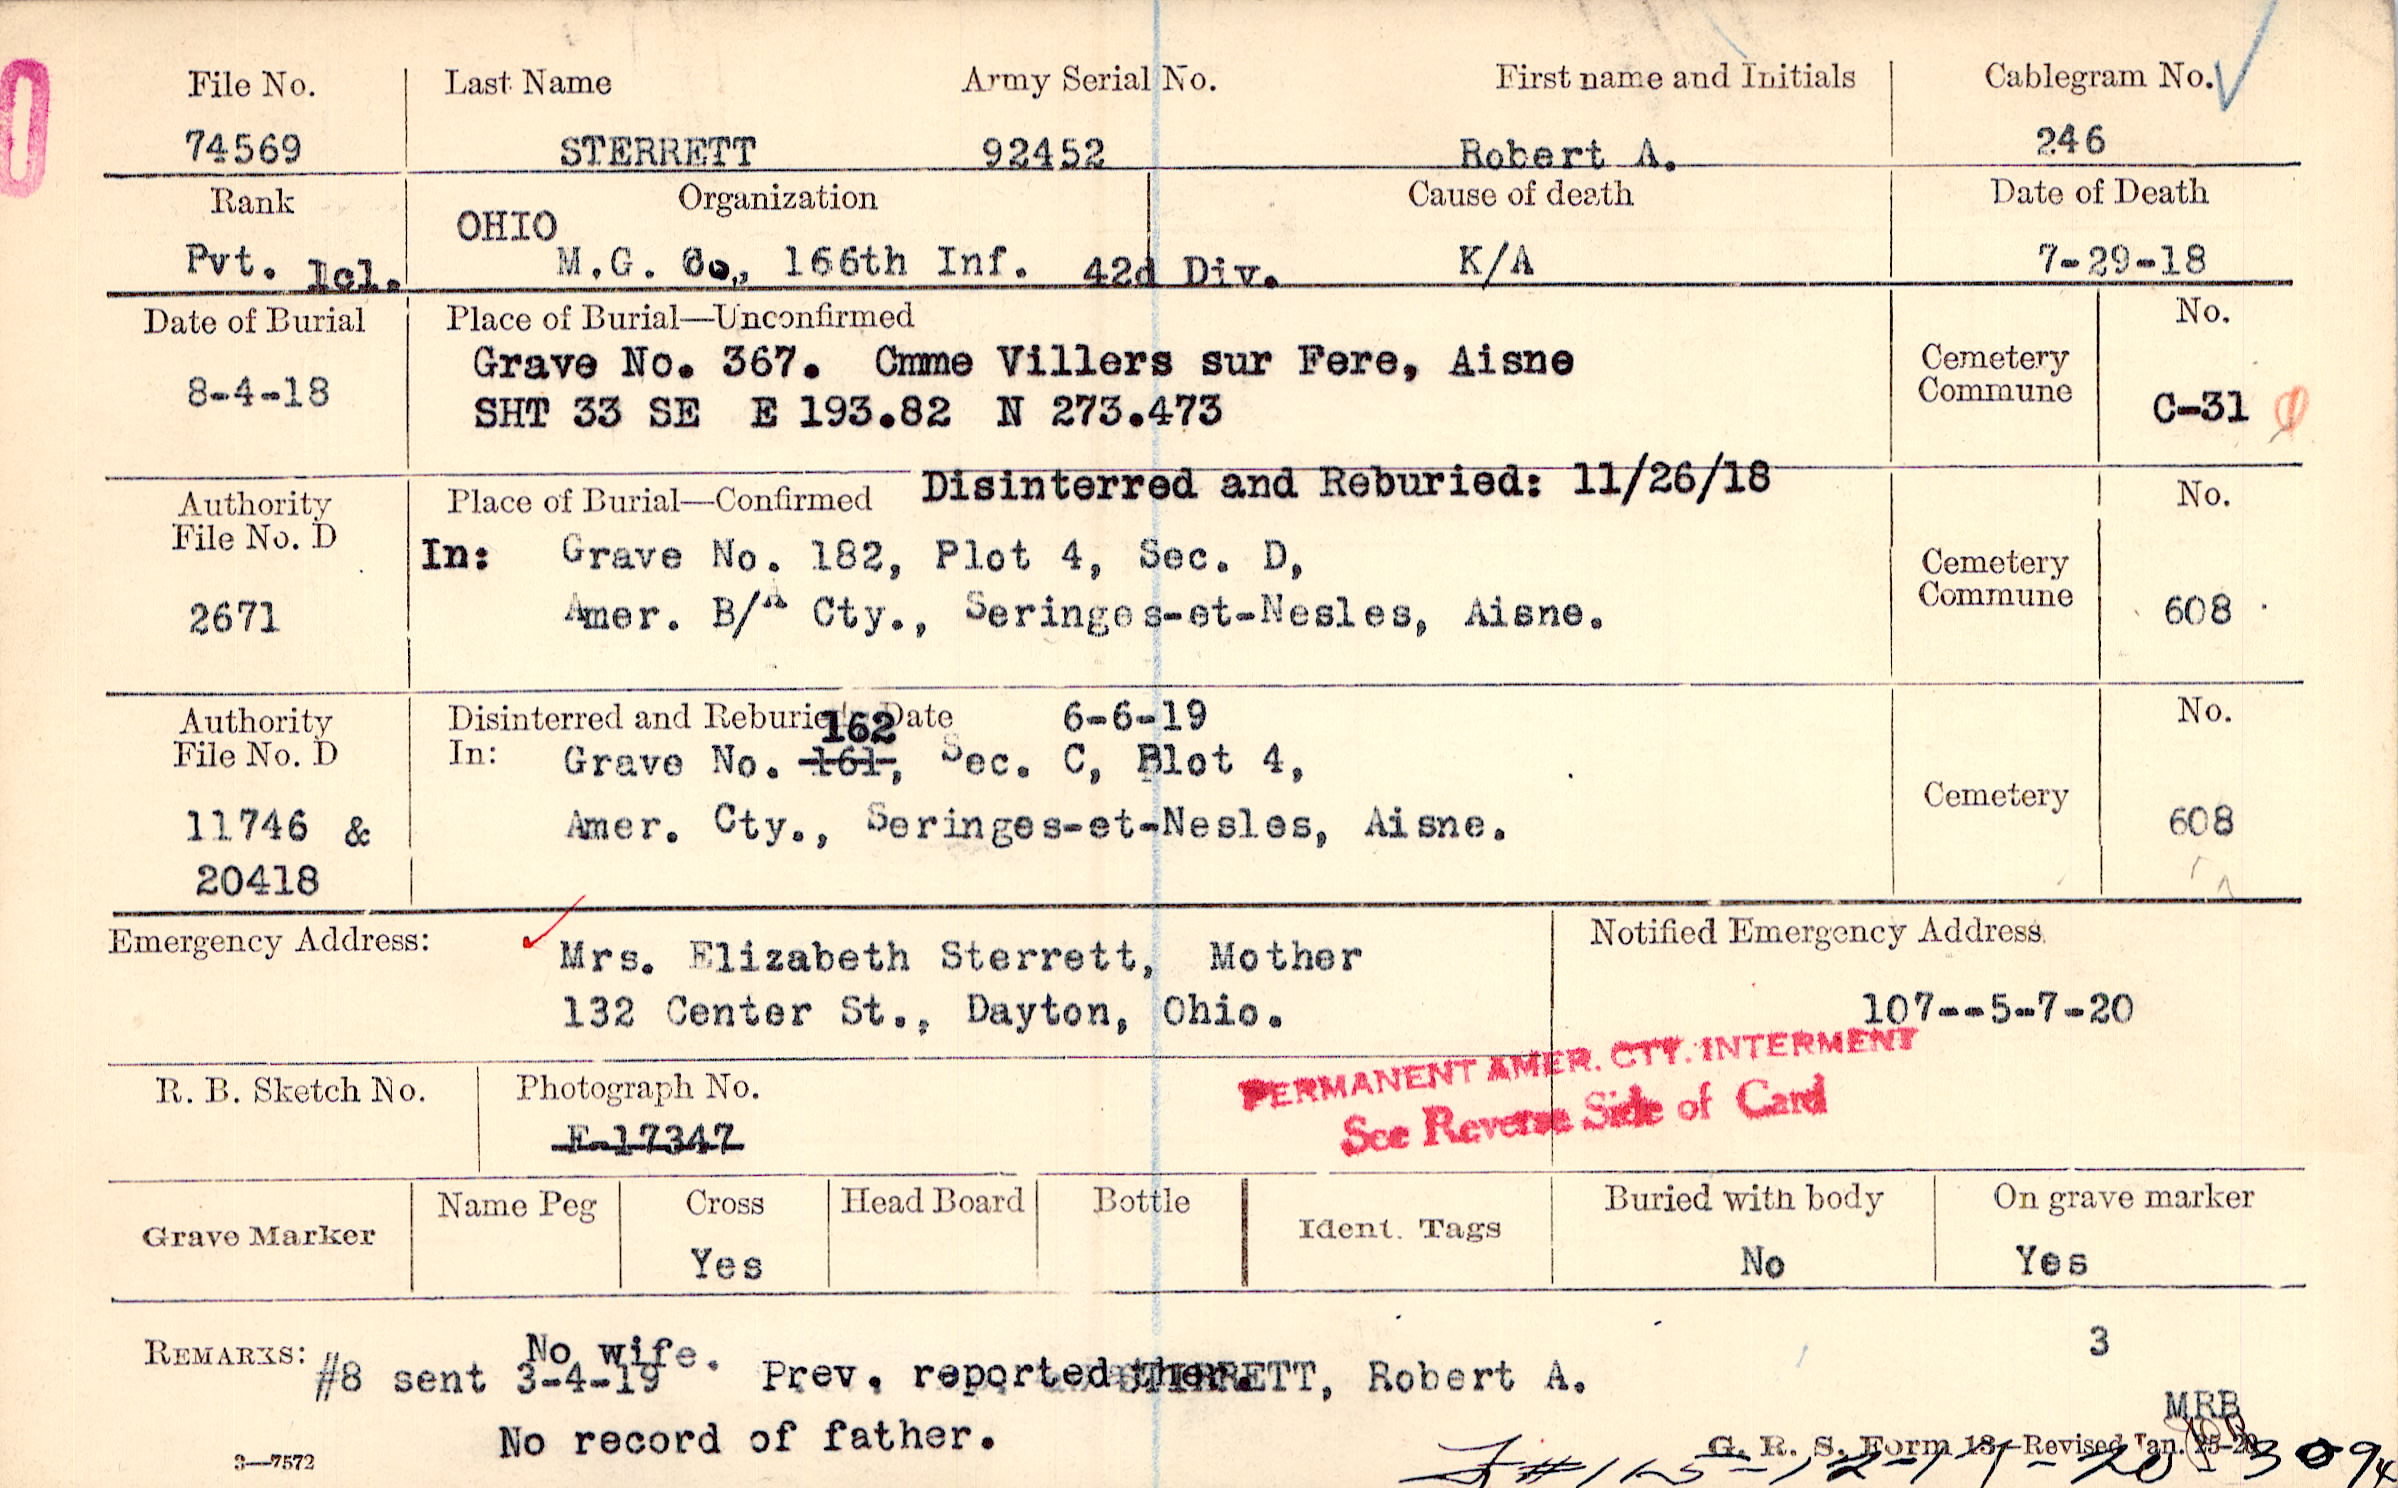 File No. Last Name Army Serial No. First name and Initials Cablegram No.
74569 STERRETT 92452 Robert A. 246
Rank Organization Cause of death Date of Death
OHIO
Pvt. 1cl. M.G. Co., 166th Inf. 42d Div. K/A 7-29-18
Date of Burial Place of Burial—Unconfirmed No.
Grave No. 367. Cmme Villers sur Fere, Aisne Cemetery
8-4-18 SHT 33 SE E 193.82 N 273.473 Commune C-31
Disinterred and Reburied: 11/26/18
Authority Place of Burial—Confirmed No.
File No. D In: Grave No. 182, Plot 4, Sec. D, Cemetery
2671 Amer. B/A Cty., Seringes-et-Nesles, Aisne. Commune 608
Authority Disinterred and Reburied: Date 6-6-19 No.
162
File No. D In: Grave No. 161, Sec. C, Plot 4, Cemetery
11746 & Amer. Cty., Seringes-et-Nesles, Aisne. 608
20418
Emergency Address: Mrs. Elizabeth Sterrett, Mother Notified Emergency Address
132 Center St., Dayton, Ohio. 107--5-7-20
PERMANENT AMER. CTY. INTERMENT
See Reverse Side of Card
R. B. Sketch No. Photograph No.
F-17347
Grave Marker Name Peg Cross Head Board Bottle Ident. Tags Buried with body On grave marker
Yes No Yes
3
No wife.
REMARKS: #8 sent 3-4-19 Prev. reported STIRRETT, Robert A.
MRB
No record of father.
3—7572 G. R. S. Form 13—Revised Jan.